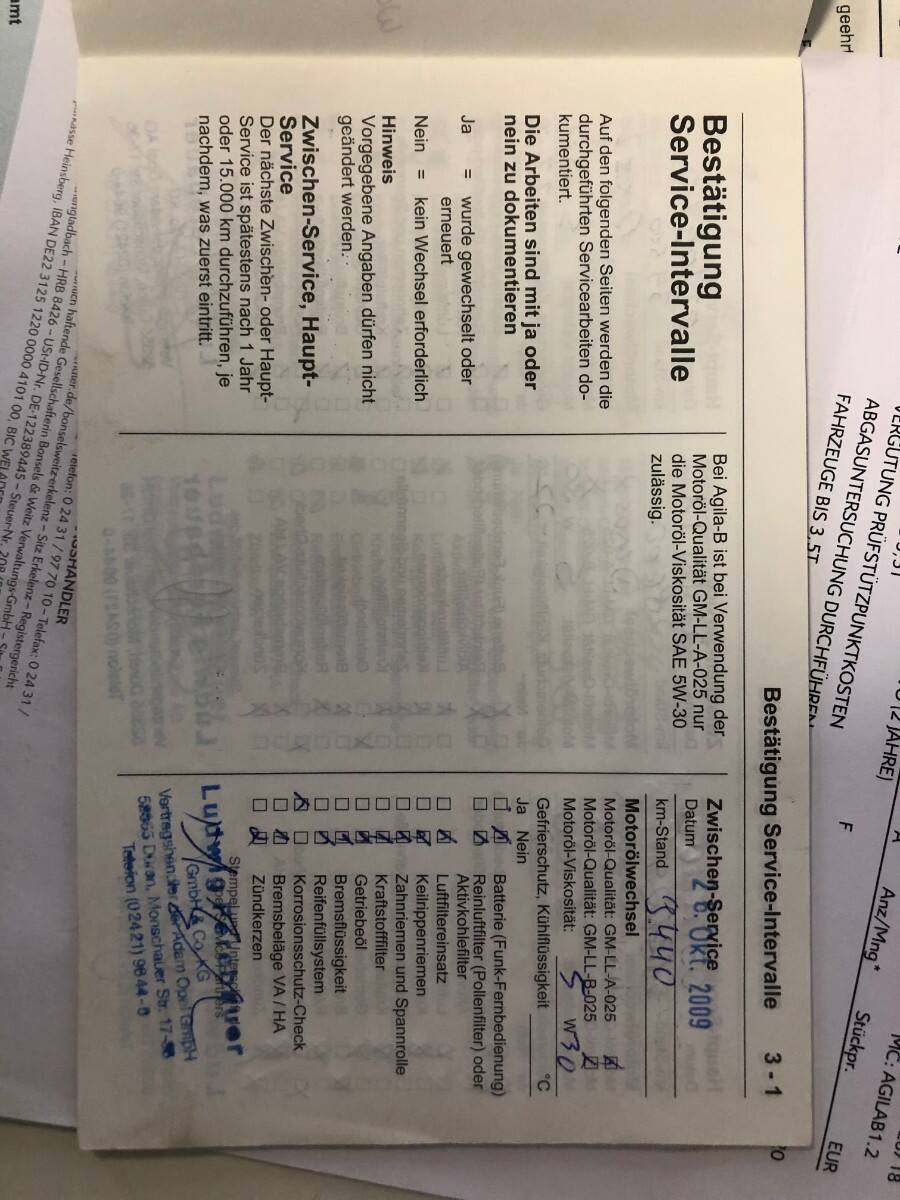 Bestätigung Service-Intervalle 3 - 1
Bestätigung
Service-Intervalle
Auf den folgenden Seiten werden die
durchgeführten Servicearbeiten do-
kumentiert.
Die Arbeiten sind mit ja oder
nein zu dokumentieren
Ja = wurde gewechselt oder
erneuert
Nein = kein Wechsel erforderlich
Hinweis
Vorgegebene Angaben dürfen nicht
geändert werden.
Zwischen-Service, Haupt-
Service
Der nächste Zwischen- oder Haupt-
Service ist spätestens nach 1 Jahr
oder 15.000 km durchzuführen, je
nachdem, was zuerst eintritt.
Bei Agila-B ist bei Verwendung der
Motoröl-Qualität GM-LL-A-025 nur
die Motoröl-Viskosität SAE 5W-30
zulässig.
Zwischen-Service
Datum 26. Okt. 2009
km-Stand 9.440
Motorölwechsel
Motoröl-Qualität: GM-LL-A-025
Motoröl-Qualität: GM-LL-B-025
Motoröl-Viskosität: 5 W30
Gefrierschutz, Kühlflüssigkeit °C
Ja Nein
Batterie (Funk-Fernbedienung)
Reinluftfilter (Pollenfilter) oder
Aktivkohlefilter
Luftfiltereinsatz
Keilrippenriemen
Zahnriemen und Spannrolle
Kraftstofffilter
Getriebeöl
Bremsflüssigkeit
Reifenfüllsystem
Korrosionsschutz-Check
Bremsbeläge VA / HA
Zündkerzen
Stempel
Ludwig
GmbH & Co. KG
Vertragshändler der Adam Opel GmbH
Düren, Monschauer Str.
Telefon (02421) 9844-0
geehrt
ABGASUNTERSUCHUNG DURCHFÜHREN
FAHRZEUGE BIS 3,5T
VERGÜTUNG PRÜFSTÜTZPUNKTKOSTEN
F
A
Anz/Mng*
Stückpr.
EUR
MC: AGILAB1.2
amt
Telefon: 0 24 31 / 97 70 10 – Telefax: 0 24 31 /
haftende Gesellschafterin Bonsels & Weitz Verwaltungs-GmbH
– HRB 8426 – USt-ID-Nr. DE-122389445 – Steuer-Nr.
Heinsberg, IBAN DE22 3125 1220 0000 4101 00, BIC